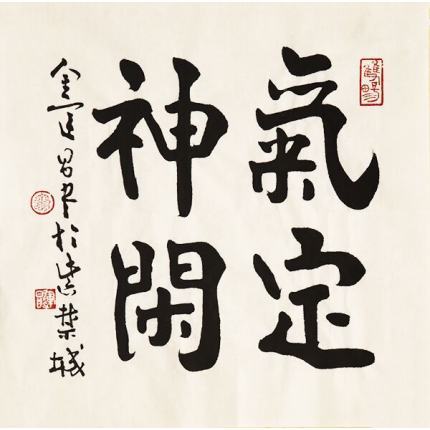 氣定
神閑
金運昌書於紫禁城